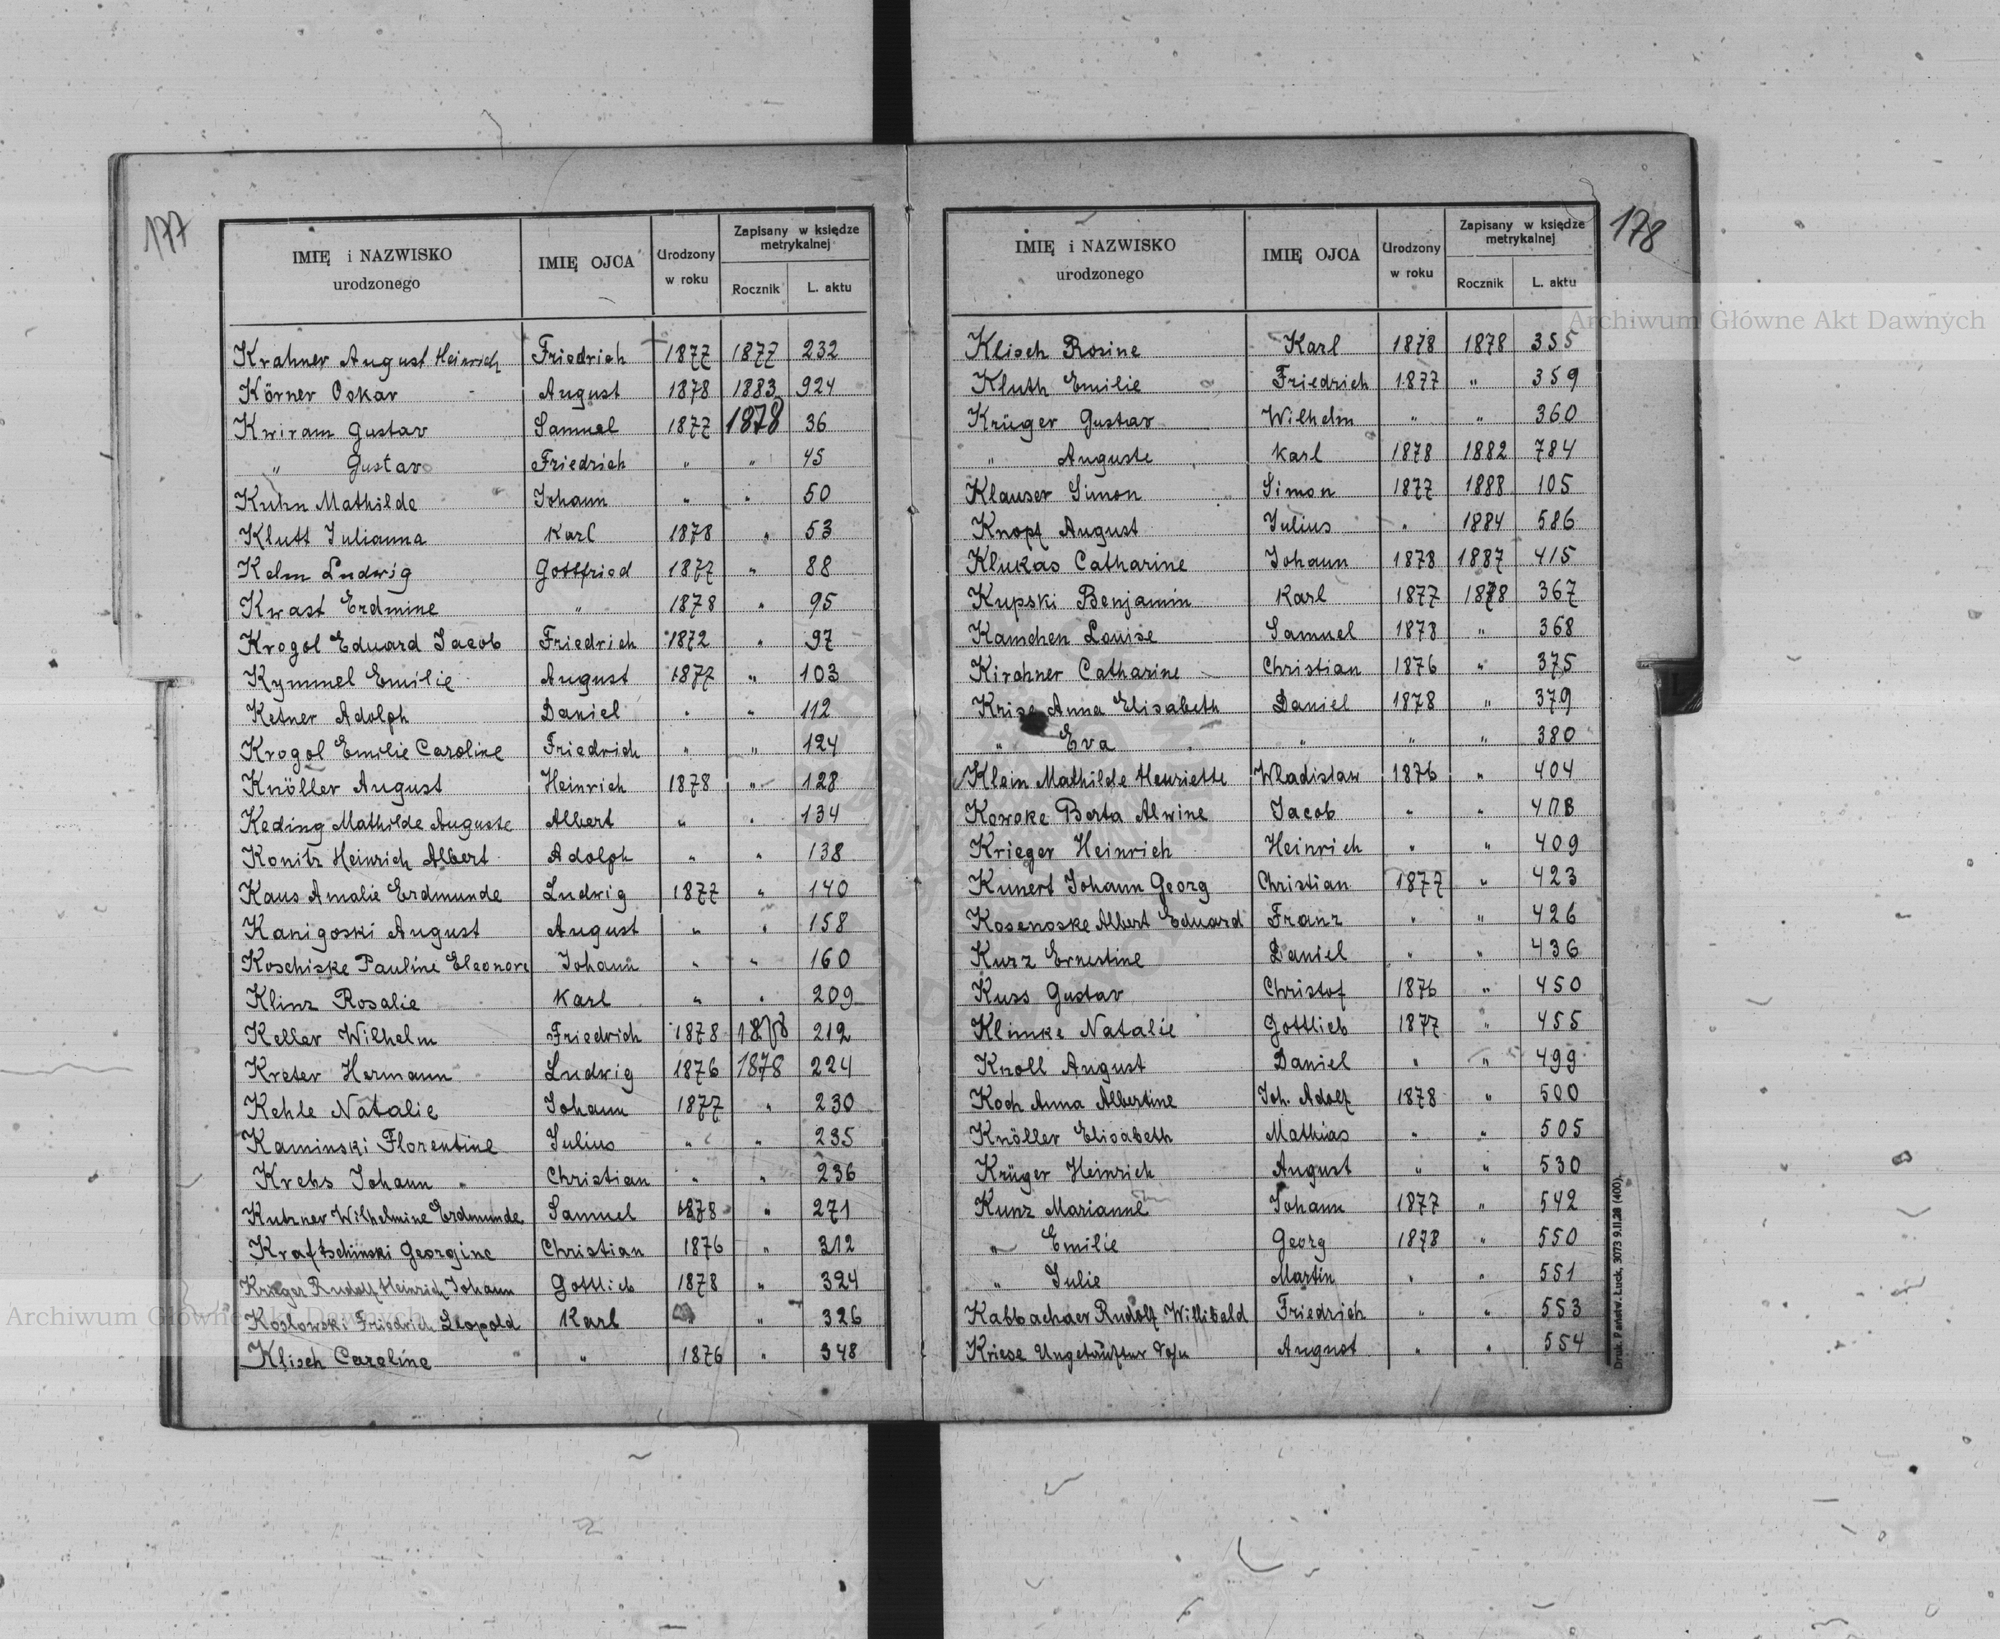 177
IMIĘ i NAZWISKO urodzonego | IMIĘ OJCA | Urodzony w roku | Zapisany w księdze metrykalnej
Rocznik | L. aktu
Krahner August Heinrich | Friedrich | 1877 | 1877 | 232
Körner Oskar | August | 1878 | 1883 | 924
Kwiram Gustav | Samuel | 1877 | 1878 | 36
" Gustav | Friedrich | " | " | 45
Kuhn Mathilde | Johann | " | " | 50
Klutt Julianna | Karl | 1878 | " | 53
Kelm Ludwig | Gottfried | 1877 | " | 88
Kwast Erdmine | " | 1878 | " | 95
Krogol Eduard Jacob | Friedrich | 1872 | " | 97
Kymmel Emilie | August | 1877 | " | 103
Ketner Adolph | Daniel | " | " | 112
Krogol Emilie Caroline | Friedrich | " | " | 124
Knöller August | Heinrich | 1878 | " | 128
Keding Mathilde Auguste | Albert | " | " | 134
Konitz Heinrich Albert | Adolph | " | " | 138
Kaus Amalie Erdmunde | Ludwig | 1877 | " | 140
Kanigoski August | August | " | " | 158
Koschiske Pauline Eleonore | Johann | " | " | 160
Klinz Rosalie | Karl | " | " | 209
Keller Wilhelm | Friedrich | 1878 | 1878 | 212
Kreter Hermann | Ludwig | 1876 | 1878 | 224
Kehle Natalie | Johann | 1877 | " | 230
Kaminski Florentine | Julius | " | " | 235
Krebs Johann | Christian | " | " | 236
Kutzner Wilhelmine Erdmunde | Samuel | 1878 | " | 271
Kraftschinski Georgine | Christian | 1876 | " | 312
Krieger Rudolf Heinrich Johann | Gottlieb | 1878 | " | 324
Koslowski Friedrich Leopold | Karl | " | 326
Klisch Caroline | " | 1876 | " | 348
178
IMIĘ i NAZWISKO urodzonego | IMIĘ OJCA | Urodzony w roku | Zapisany w księdze metrykalnej
Rocznik | L. aktu
Klisch Rosine | Karl | 1878 | 1878 | 355
Kluth Emilie | Friedrich | 1877 | " | 359
Krüger Gustav | Wilhelm | " | " | 360
" Auguste | Karl | 1878 | 1882 | 784
Klauser Simon | Simon | 1877 | 1888 | 105
Knopf August | Julius | " | 1884 | 586
Klukas Catharine | Johann | 1878 | 1887 | 415
Kupski Benjamin | Karl | 1877 | 1878 | 367
Kamchen Louise | Samuel | 1878 | " | 368
Kirchner Catharine | Christian | 1876 | " | 375
Krise Anna Elisabeth | Daniel | 1878 | " | 379
" Eva | " | " | " | 380
Klein Mathilde Henriette | Wladislaw | 1876 | " | 404
Kowske Berta Alwine | Jacob | " | "
Krieger Heinrich | Heinrich | " | " | 409
Kunert Johann Georg | Christian | 1877 | " | 423
Kosenoske Albert Eduard | Franz | " | " | 426
Kurz Ernestine | Daniel | " | " | 436
Kuss Gustav | Christof | 1876 | " | 450
Klimke Natalie | Gottlieb | 1877 | " | 455
Knoll August | Daniel | " | " | 499
Koch Anna Albertine | Joh. Adolf | 1878 | " | 500
Knöller Elisabeth | Mathias | " | " | 505
Krüger Heinrich | August | " | " | 530
Kunz Marianne | Johann | 1877 | " | 542
" Emilie | Georg | 1878 | " | 550
" Julie | Martin | " | " | 551
Kabbachaer Rudolf Willibald | Friedrich | " | " | 553
Kriese Ungetaufter | August | " | " | 554
Druk. Państw. Łuck, 3073 9.II.28 (400).
Archiwum Główne Akt Dawnych
Archiwum Główne Akt Dawnych